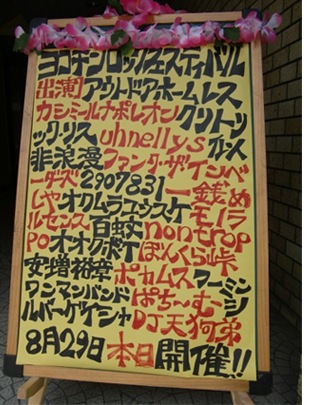 ヨコチンロックフェスティバル
出演 アウトドアホームレス
カシミールナポレオン クリトリ
ック・リス uhnellys
非浪漫 ファンタ・ザ・インベ
ーダズ 2907831 一銭め
しや オクムラユウスケ モノラ
ルセンス 百蚊 nontrop
po オオクボケ ぼんくら峠
安増裕章 ポカムス ワーミン
ワンマンバンド ぱち〜む シ
ルバーゲイシャ DJ天狗弟
8月29日 本日開催!!